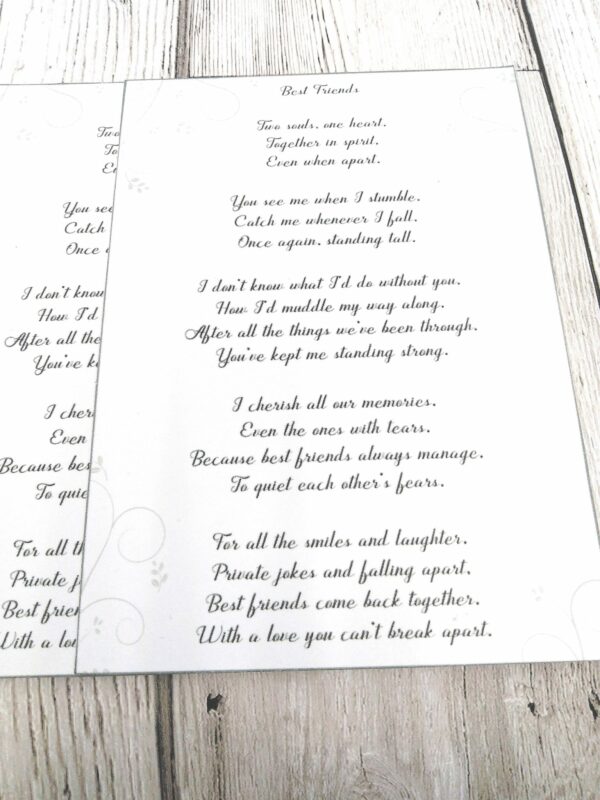 Two
You see
Catch
Once
I don't know
How I'd
After all the
You've
I
Even
Because
To
For all
Private
Best
With a
Best Friends
Two souls, one heart.
Together in spirit,
Even when apart.
You see me when I stumble,
Catch me whenever I fall,
Once again, standing tall.
I don't know what I'd do without you,
How I'd muddle my way along.
After all the things we've been through,
You've kept me standing strong.
I cherish all our memories,
Even the ones with tears.
Because best friends always manage,
To quiet each other's fears.
For all the smiles and laughter,
Private jokes and falling apart,
Best friends come back together,
With a love you can't break apart.